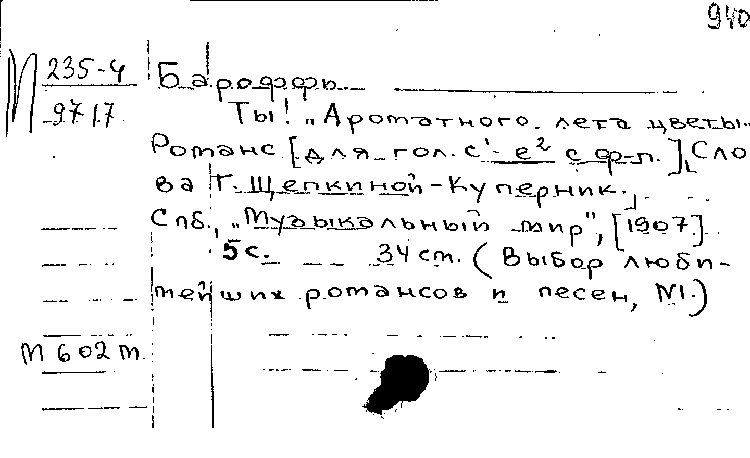 940
М 235-4
9717
Бароффъ
Ты! „Ароматного лета цветы..
Романс [для гол. с¹- е² с ф-п.], Сло
ва Т. Щепкиной-Куперник.
Спб., „Музыкальный мир", [1907].
5 с. 34 ст. (Выбор люби-
мейших романсов и песен, №1.)
М 602 м.